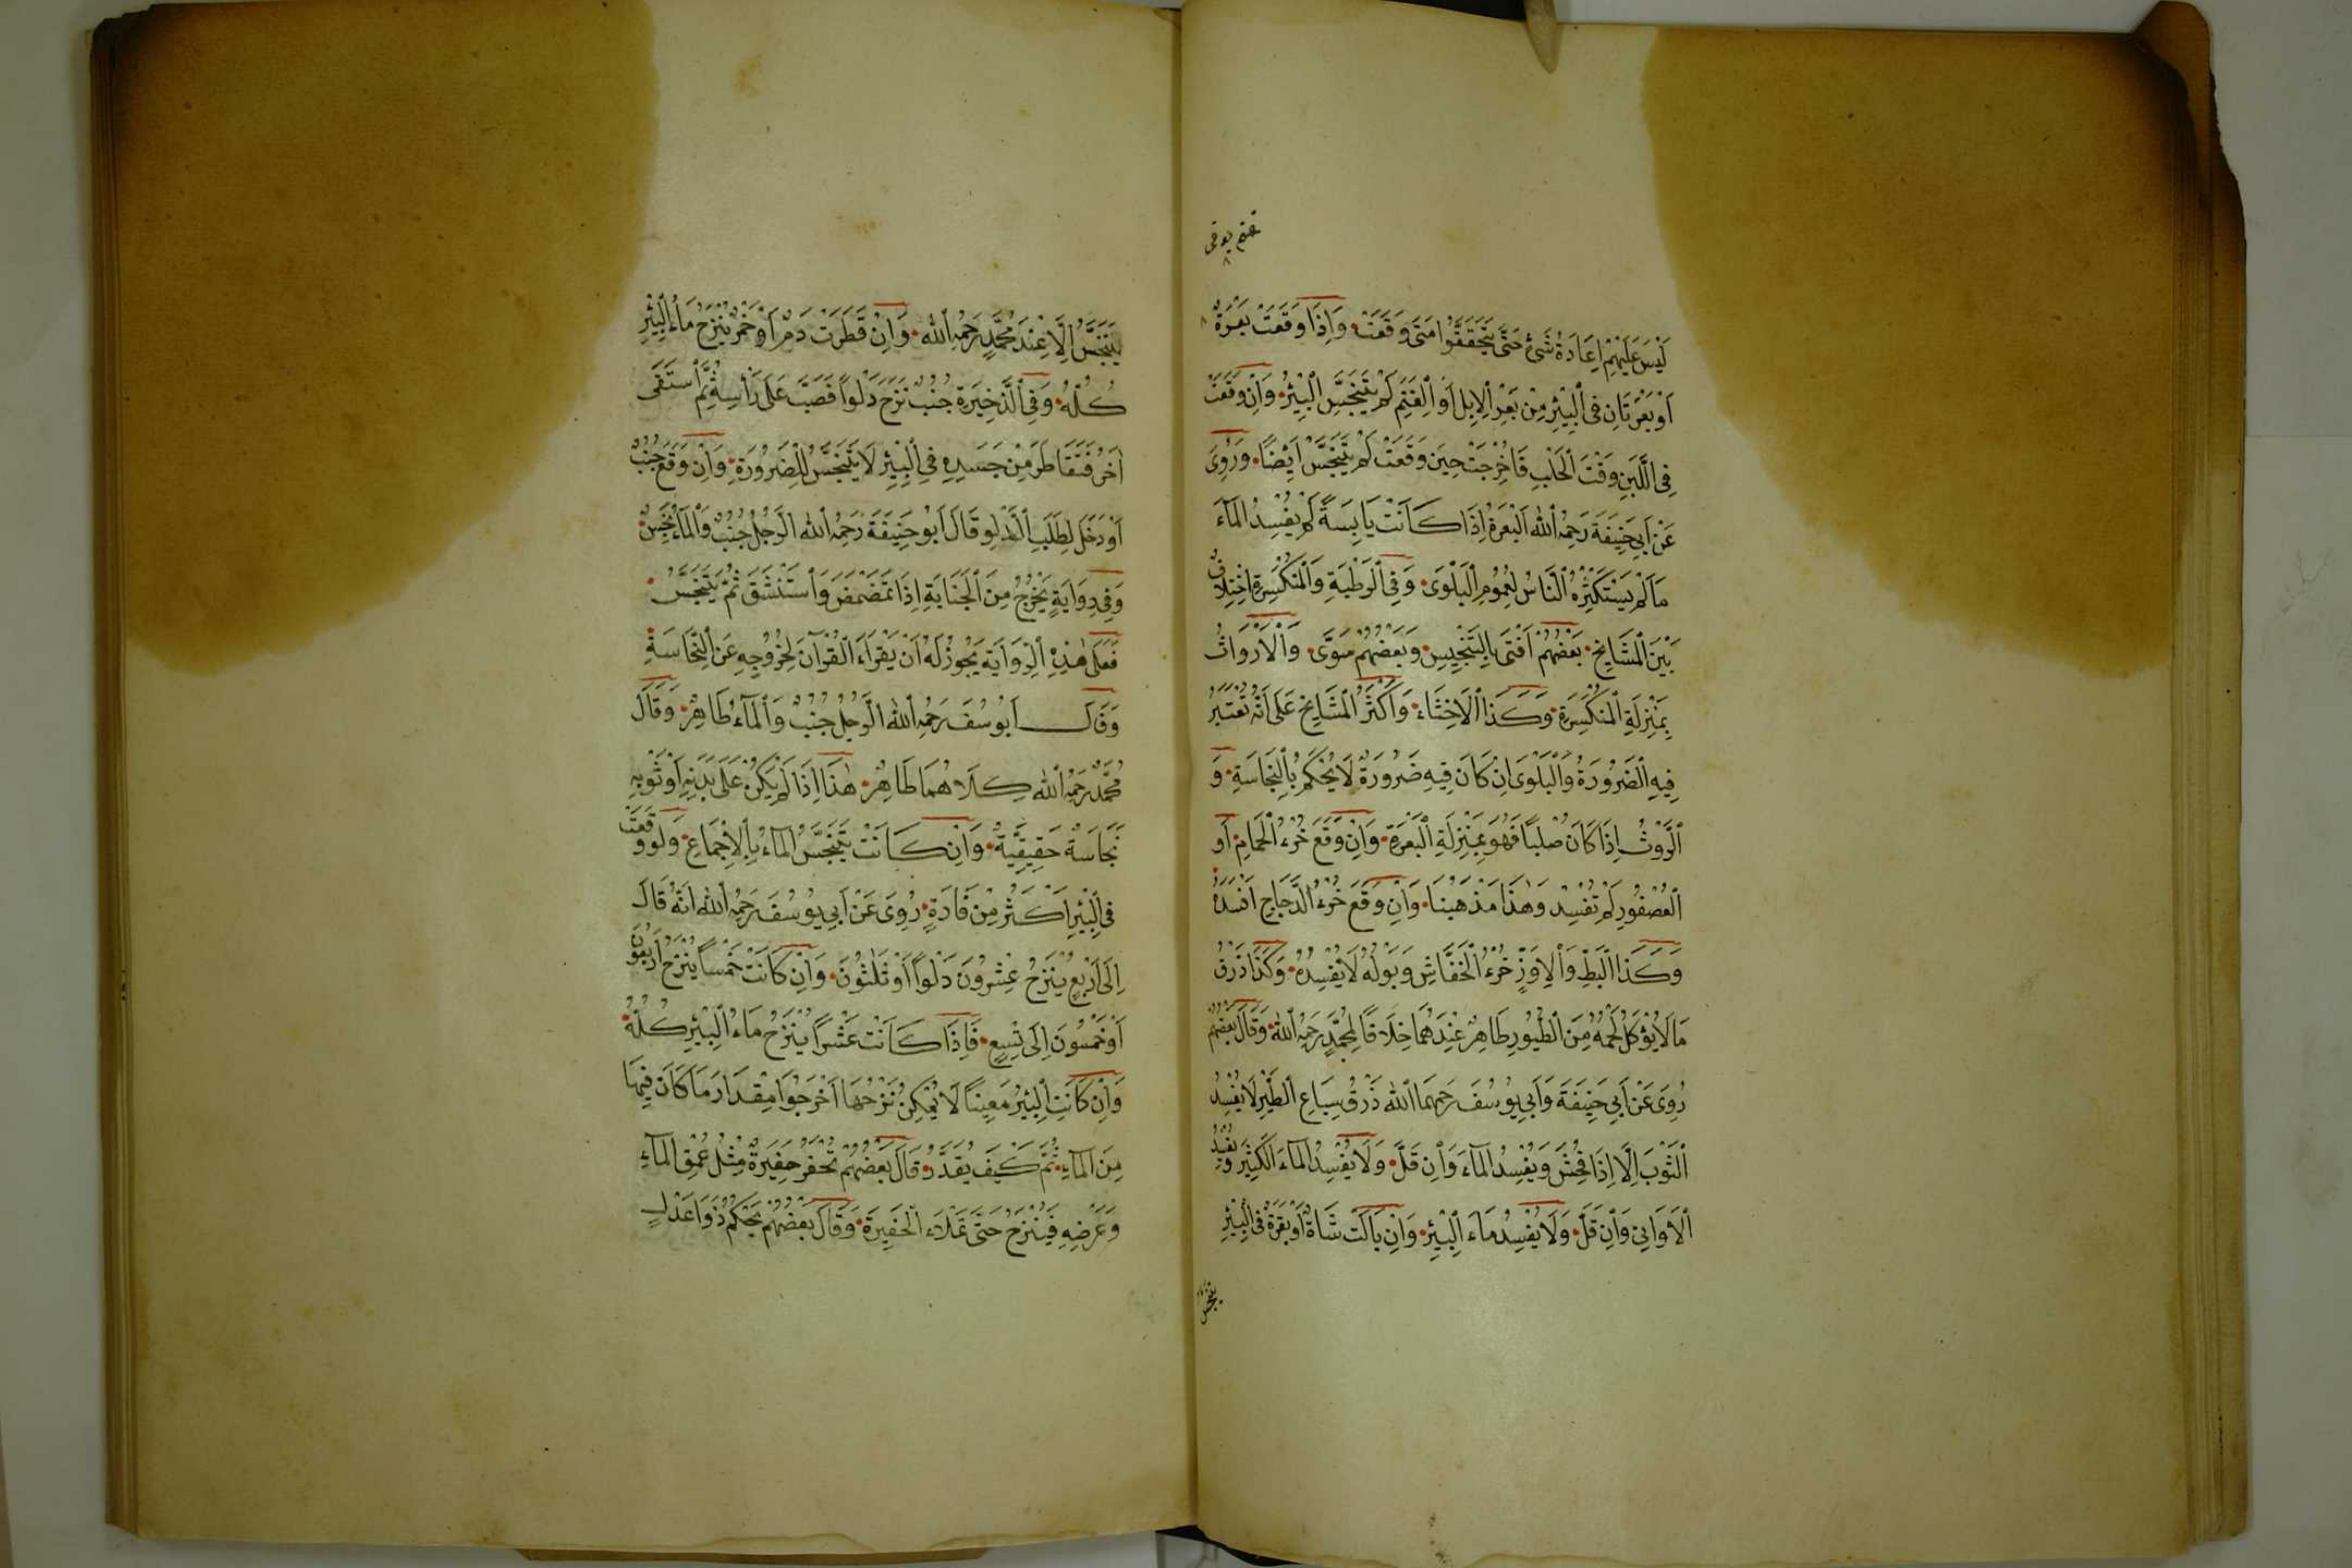 غنم يوقى
لَيْسَ عَلَيْهِمْ اِعَادَةُ شَىْءٍ حَتَّى يَتَحَقَّقُوا مَتَى وَقَعَتْ وَاِذَا وَقَعَتْ بَعْرَةٌ
اَوْ بَعْرَتَانِ فِى الْبِئْرِ مِنْ بَعْرِ الْاِبِلِ اَوِ الْغَنَمِ لَمْ يَتَنَجَّسِ الْبِئْرُ وَاِنْ وَقَعَتْ
فِى اللَّبَنِ وَقْتَ الْحَلْبِ فَاُخْرِجَتْ حِينَ وَقَعَتْ لَمْ يَتَنَجَّسْ اَيْضًا وَرُوِىَ
عَنْ اَبِى حَنِيفَةَ رَحِمَهُ اللهُ اَلْبَعْرَةُ اِذَا كَانَتْ يَابِسَةً لَمْ يُفْسِدِ الْمَآءَ
مَا لَمْ يَسْتَكْثِرْهُ النَّاسُ لِعُمُومِ الْبَلْوَى وَفِى الرَّطْبَةِ وَالْمُنْكَسِرَةِ اخْتِلَافٌ
بَيْنَ الْمَشَايِخِ بَعْضُهُمْ اَفْتَى بِالتَّنْجِيسِ وَبَعْضُهُمْ سَوَّى وَالْاَرْوَاثُ
بِمَنْزِلَةِ الْمُنْكَسِرَةِ وَكَذَا الْاَخْثَاءُ وَاَكْثَرُ الْمَشَايِخِ عَلَى اَنَّهُ تُعْتَبَرُ
فِيهِ الضَّرُورَةُ وَالْبَلْوَى اِنْ كَانَ فِيهِ ضَرُورَةٌ لَا يُحْكَمُ بِالنَّجَاسَةِ وَ
الرَّوْثُ اِذَا كَانَ صُلْبًا فَهُوَ بِمَنْزِلَةِ الْبَعْرَةِ وَاِنْ وَقَعَ خُرْءُ الْحَمَامِ اَوِ
الْعُصْفُورِ لَمْ تُفْسِدْ وَهٰذَا مَذْهَبُنَا وَاِنْ وَقَعَ خُرْءُ الدَّجَاجِ اَفْسَدَهُ
وَكَذَا الْبَطِّ وَالْاِوَزِّ خُرْءُ الْخَفَّاشِ وَبَوْلُهُ لَا يُفْسِدُهُ وَكَذَا ذَرْقُ
مَا لَا يُؤْكَلُ لَحْمُهُ مِنَ الطُّيُورِ طَاهِرٌ عِنْدَهُمَا خِلَافًا لِمُحَمَّدٍ رَحِمَهُ اللهُ وَقَالَ بَعْضُهُمْ
رُوِىَ عَنْ اَبِى حَنِيفَةَ وَاَبِى يُوسُفَ رَحِمَهُمَا اللهُ ذَرْقُ سِبَاعِ الطَّيْرِ لَا يُفْسِدُ
الثَّوْبَ اِلَّا اِذَا فَحُشَ وَيُفْسِدُ الْمَآءَ وَاِنْ قَلَّ وَلَا يُفْسِدُ الْمَاءَ الْكَثِيرَ وَيُفْسِدُ
الْاَوَانِىَ وَاِنْ قَلَّ وَلَا يُفْسِدُ مَاءَ الْبِئْرِ وَاِنْ بَالَتْ شَاةٌ اَوْ بَقَرَةٌ فِى الْبِئْرِ
يتنجس
يَتَنَجَّسُ اِلَّا عِنْدَ مُحَمَّدٍ رَحِمَهُ اللهُ وَاِنْ قَطَرَتْ دَمٌ اَوْ خَمْرٌ يُنْزَحُ مَاءُ الْبِئْرِ
كُلُّهُ وَفِى الذَّخِيرَةِ جُنُبٌ نَزَحَ دَلْوًا فَصَبَّ عَلَى رَأْسِهِ ثُمَّ اسْتَقَى
اٰخَرُ فَتَقَاطَرَ مِنْ جَسَدِهِ فِى الْبِئْرِ لَا يَتَنَجَّسُ لِلضَّرُورَةِ وَاِنْ وَقَعَ جُنُبٌ
اَوْ دَخَلَ لِطَلَبِ الدَّلْوِ قَالَ اَبُو حَنِيفَةَ رَحِمَهُ اللهُ الرَّجُلُ جُنُبٌ وَالْمَاءُ نَجِسٌ
وَفِى رِوَايَةٍ يَخْرُجُ مِنَ الْجَنَابَةِ اِذَا تَمَضْمَضَ وَاسْتَنْشَقَ ثُمَّ يَتَنَجَّسُ
فَعَلَى هٰذِهِ الرِّوَايَةِ يَجُوزُ لَهُ اَنْ يَقْرَاَءَ الْقُرْآنَ لِخُرُوجِهِ عَنِ النَّجَاسَةِ
وَقَالَ اَبُو سُفَ رَحِمَهُ اللهُ الرَّجُلُ جُنُبٌ وَالْمَآءُ طَاهِرٌ وَقَالَ
مُحَمَّدٌ رَحِمَهُ اللهُ كِلَاهُمَا طَاهِرٌ هٰذَا اِذَا لَمْ يَكُنْ عَلَى بَدَنِهِ اَوْ ثَوْبِهِ
نَجَاسَةٌ حَقِيقِيَّةٌ وَاِنْ كَانَتْ يَتَنَجَّسُ الْمَاءُ بِالْاِجْمَاعِ وَلَوْ وَقَعَتْ
فِى الْبِئْرِ اَكْثَرُ مِنْ فَارَةٍ رُوِىَ عَنْ اَبِى يُوسُفَ رَحِمَهُ اللهُ اَنَّهُ قَالَ
اِلَى اَرْبَعٍ يُنْزَحُ عِشْرُونَ دَلْوًا اَوْ ثَلٰثُونَ وَاِنْ كَانَتْ خَمْسًا يُنْزَحُ اَرْبَعُونَ
اَوْ خَمْسُونَ اِلَى تِسْعٍ فَاِذَا كَانَتْ عَشْرًا يُنْزَحُ مَاءُ الْبِئْرِ كُلُّهُ
وَاِنْ كَانَتِ الْبِئْرُ مَعِينًا لَا يُمْكِنُ نَزْحُهَا اَخْرَجُوا مِقْدَارَ مَا كَانَ فِيهَا
مِنَ الْمَآءِ ثُمَّ كَيْفَ يُقَدَّرُ قَالَ بَعْضُهُمْ تُحْفَرُ حَفِيرَةٌ مِثْلُ عُمْقِ الْمَآءِ
وَعَرْضِهِ فَيُنْزَحُ حَتَّى تَمْلَاَءَ الْحَفِيرَةَ وَقَالَ بَعْضُهُمْ يَحْكُمُ ذَوَا عَدْلٍ